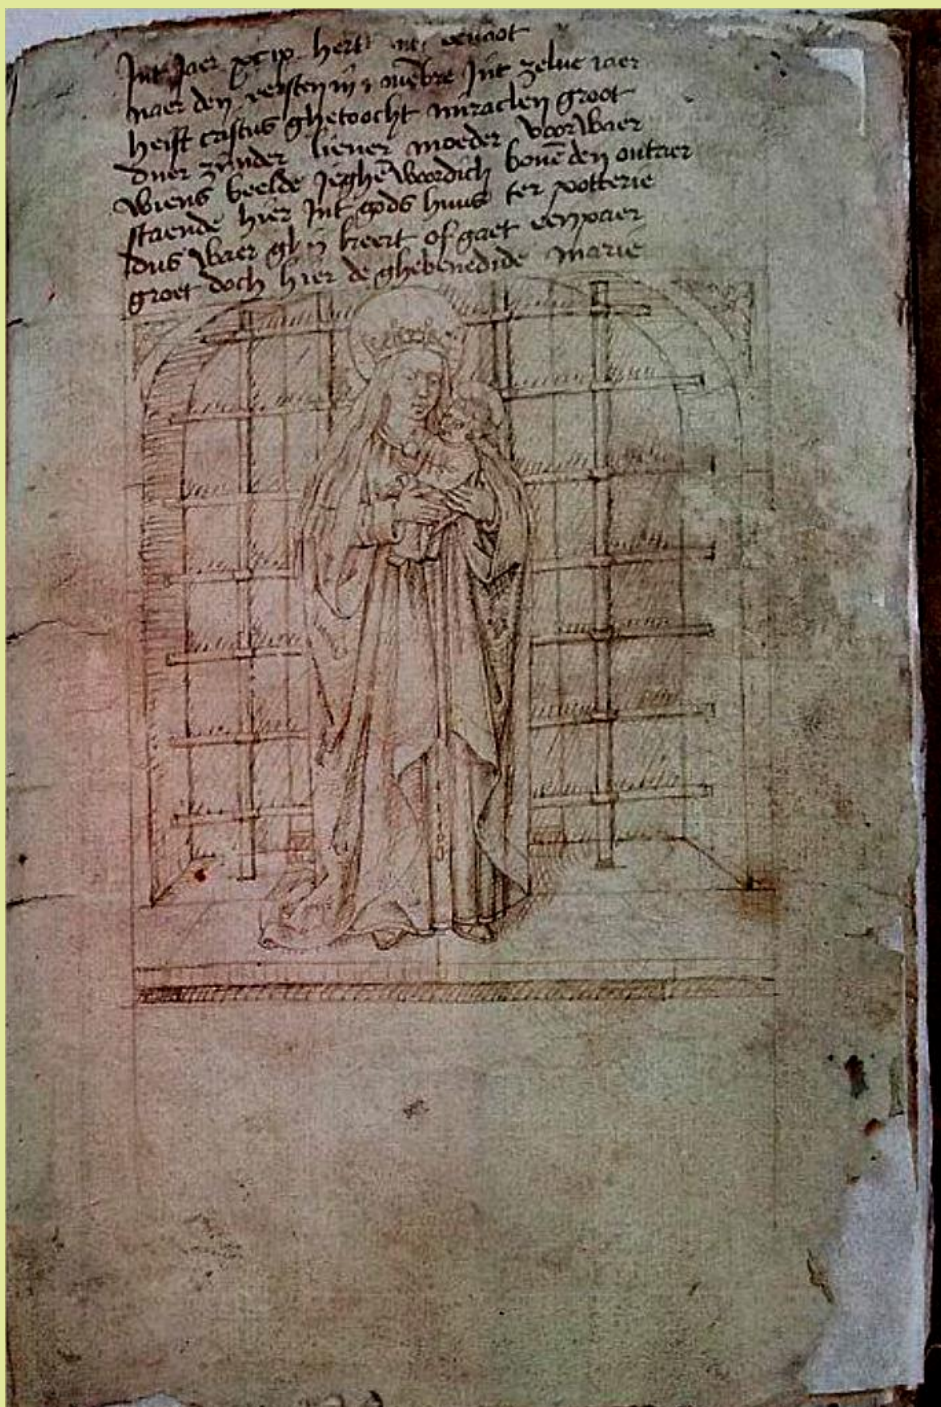 Int Jaer xcix hert
naer den eersten in nouēbre Int zelue iaer
heift cristus ghetoocht miraclen groot
duer zynder liever moeder voorwaer
wiens beelde Jeghēwoordich bouē den outaer
staende hier Int gods huus ter potterie
dus waer ghy keert of gaet eenpaer
groet doch hier de ghebenedide marie